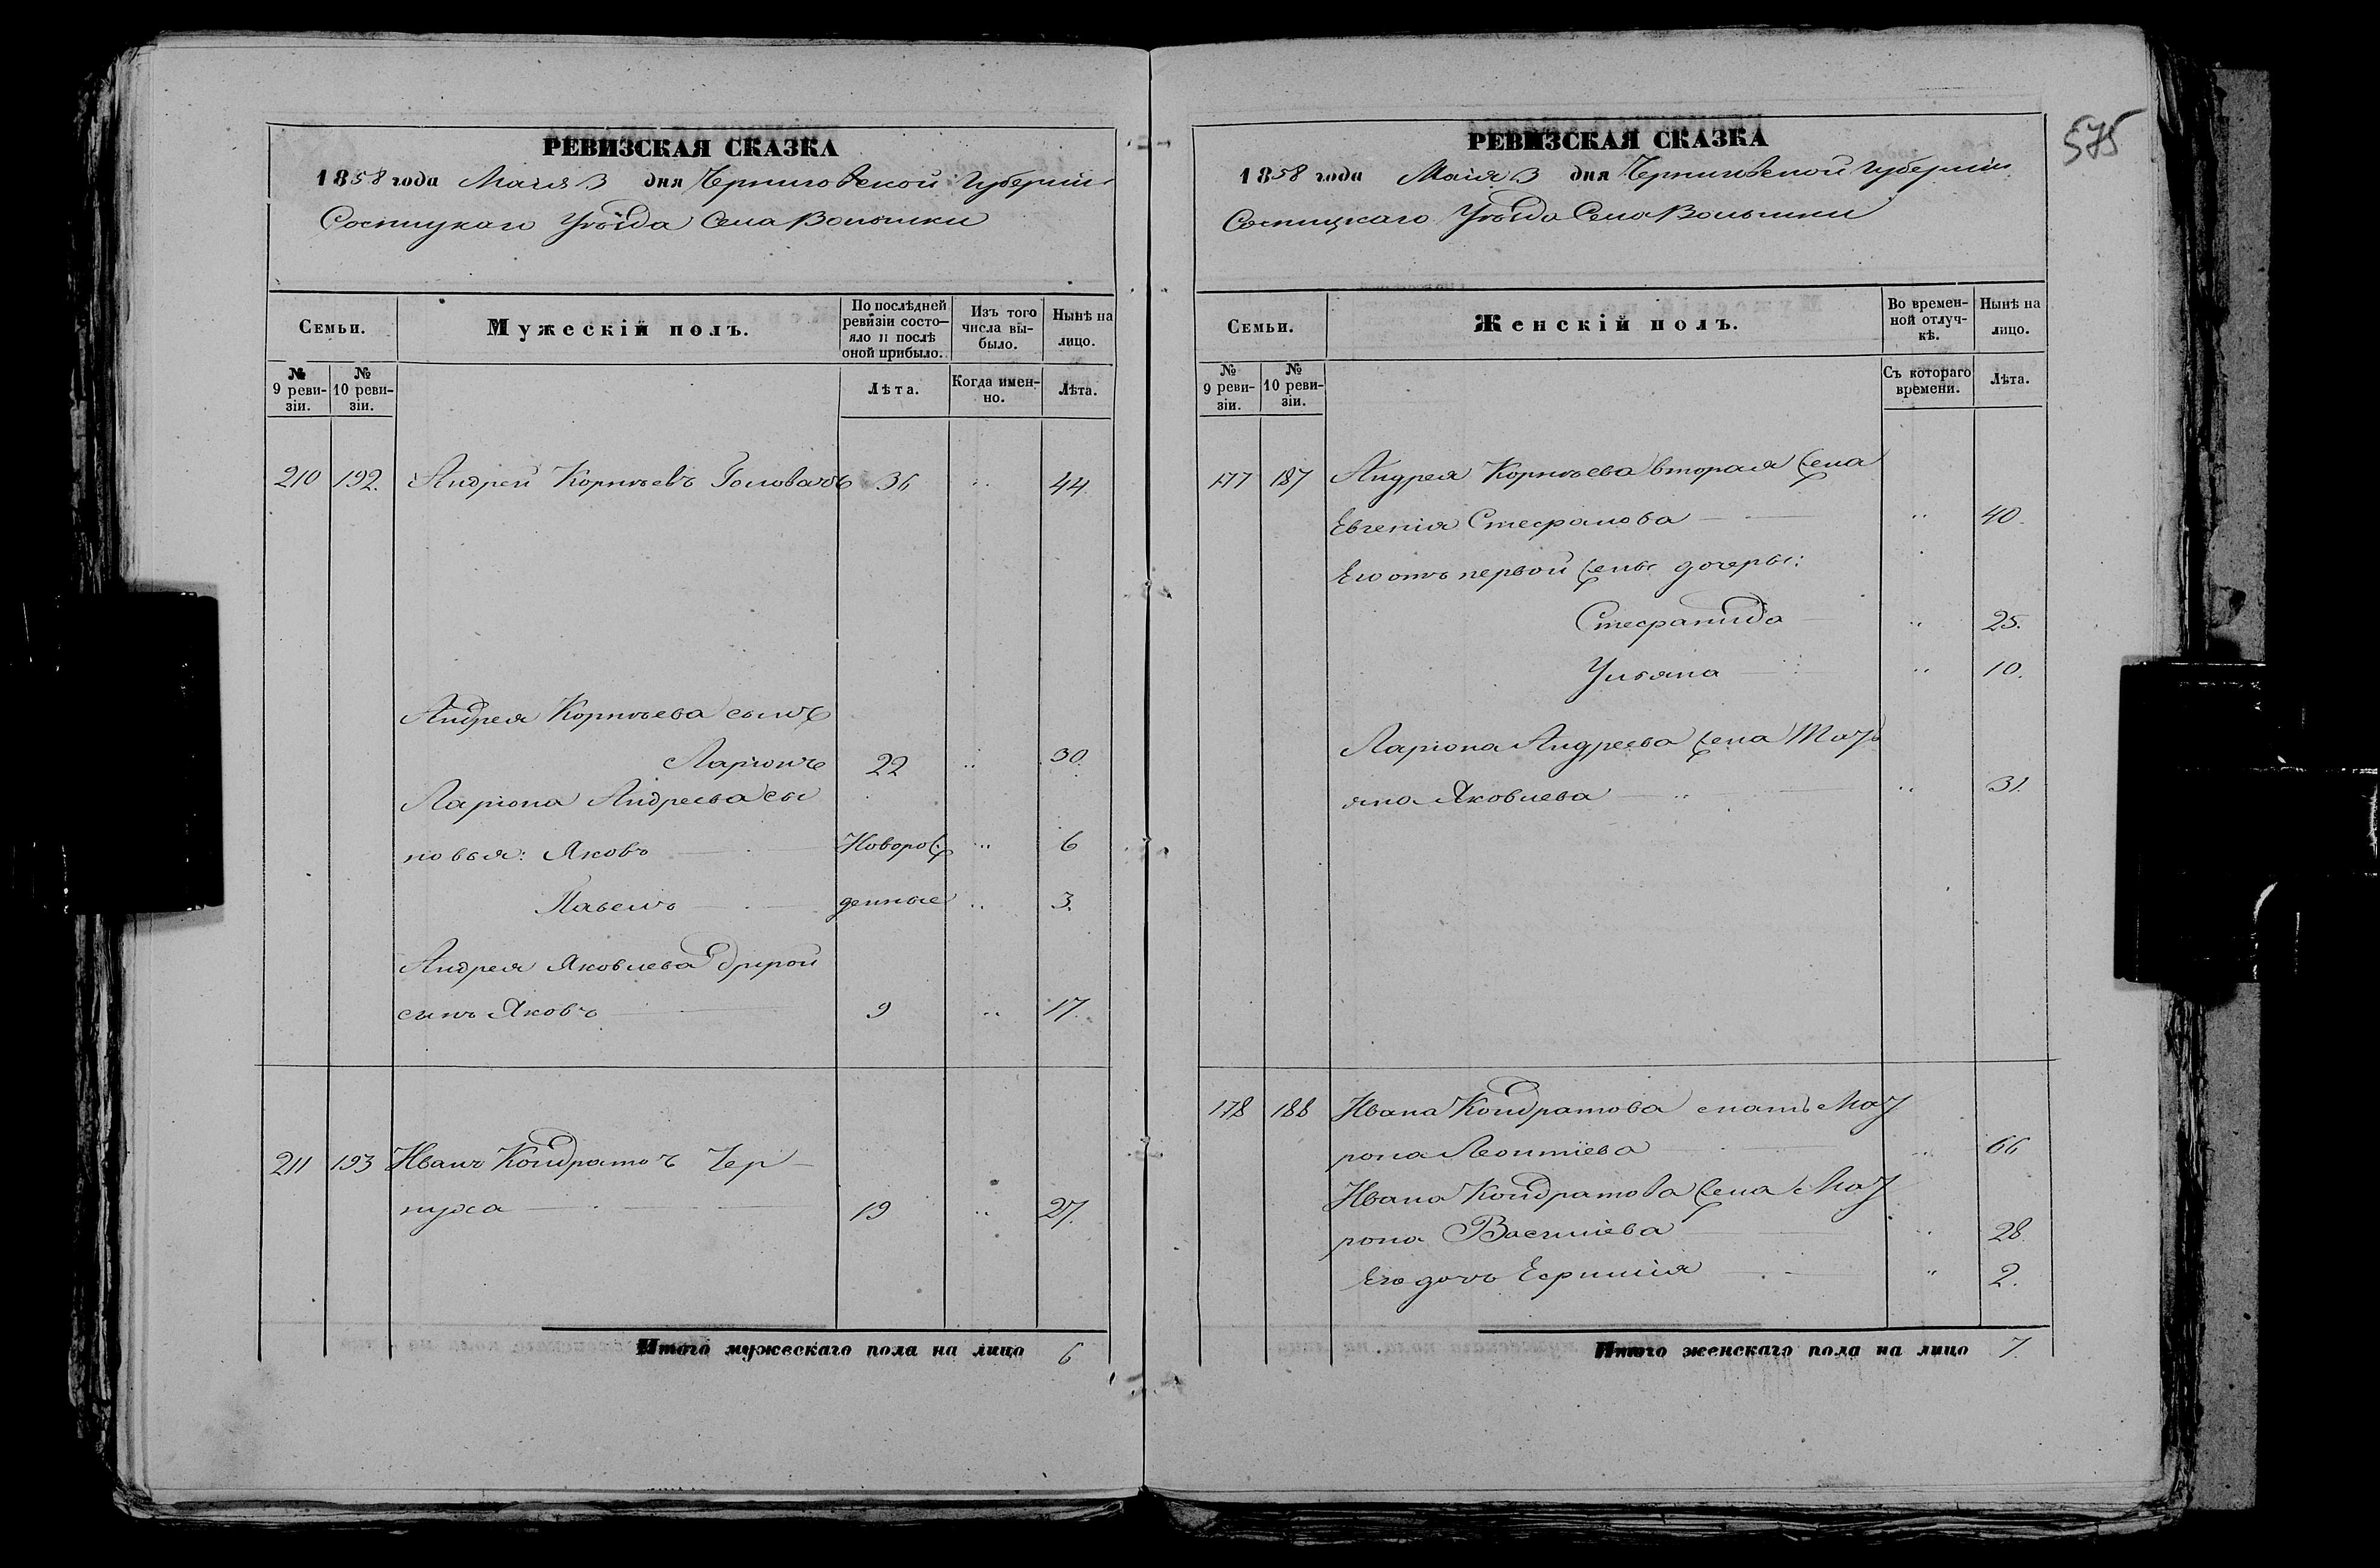 РЕВИЗСКАЯ СКАЗКА
1858 года Маія 3 дня Черниговской Губерніи
Сосницкаго Уѣзда Села Волынки
Семьи.
Мужескій полъ.
По послѣдней ревизіи состо-
яло и послѣ оной прибыло.
Изъ того числа вы-
было.
Нынѣ на лицо.
№ 9 реви-
зіи.
№ 10 реви-
зіи.
Лѣта.
Когда имен-
но.
Лѣта.
210 192. Андрей Корнѣевъ Головачъ 36 „ 44
Андрея Корнѣева сынъ
Ларіонъ 22 „ 30.
Ларіона Андреева сы
новья: Яковъ Новорож „ 6
Павелъ денные „ 3.
Андрея Яковлева другой
сынъ Яковъ 9 „ 17.
211 193 Иванъ Кондратовъ Чер
нуха 19 „ 27.
Итого мужескаго пола на лицо 6
575
РЕВИЗСКАЯ СКАЗКА
1858 года Маія 3 дня Черниговской Губерніи
Сосницкаго Уѣзда Села Волынки
Семьи.
Женскій полъ.
Во времен-
ной отлуч-
кѣ.
Нынѣ на лицо.
№ 9 реви-
зіи.
№ 10 реви-
зіи.
Съ котораго времени.
Лѣта.
177 187 Андрея Корнѣева вторая жена
Евгенія Стефанова „ 40.
Его отъ первой жены дочеры:
Стефанида „ 25.
Ульяна „ 10.
Ларіона Андреева жена Тать
яна Яковлева „ 31.
178 188 Ивана Кондратова мать Мат
рона Леонтіева „ 66
Ивана Кондратова жена Мат
рона Василіева „ 28
Его дочь Ефимія „ 2.
Итого женскаго пола на лицо 7.